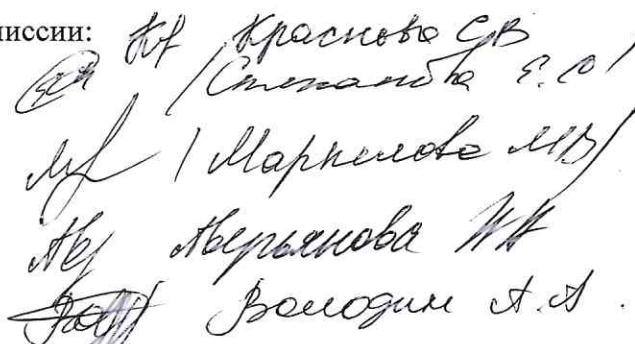 миссии: Краснова С В
/Степанова Е. О/
/ Маркелова МВ/
Аверьянова Н А
Володин А. А.